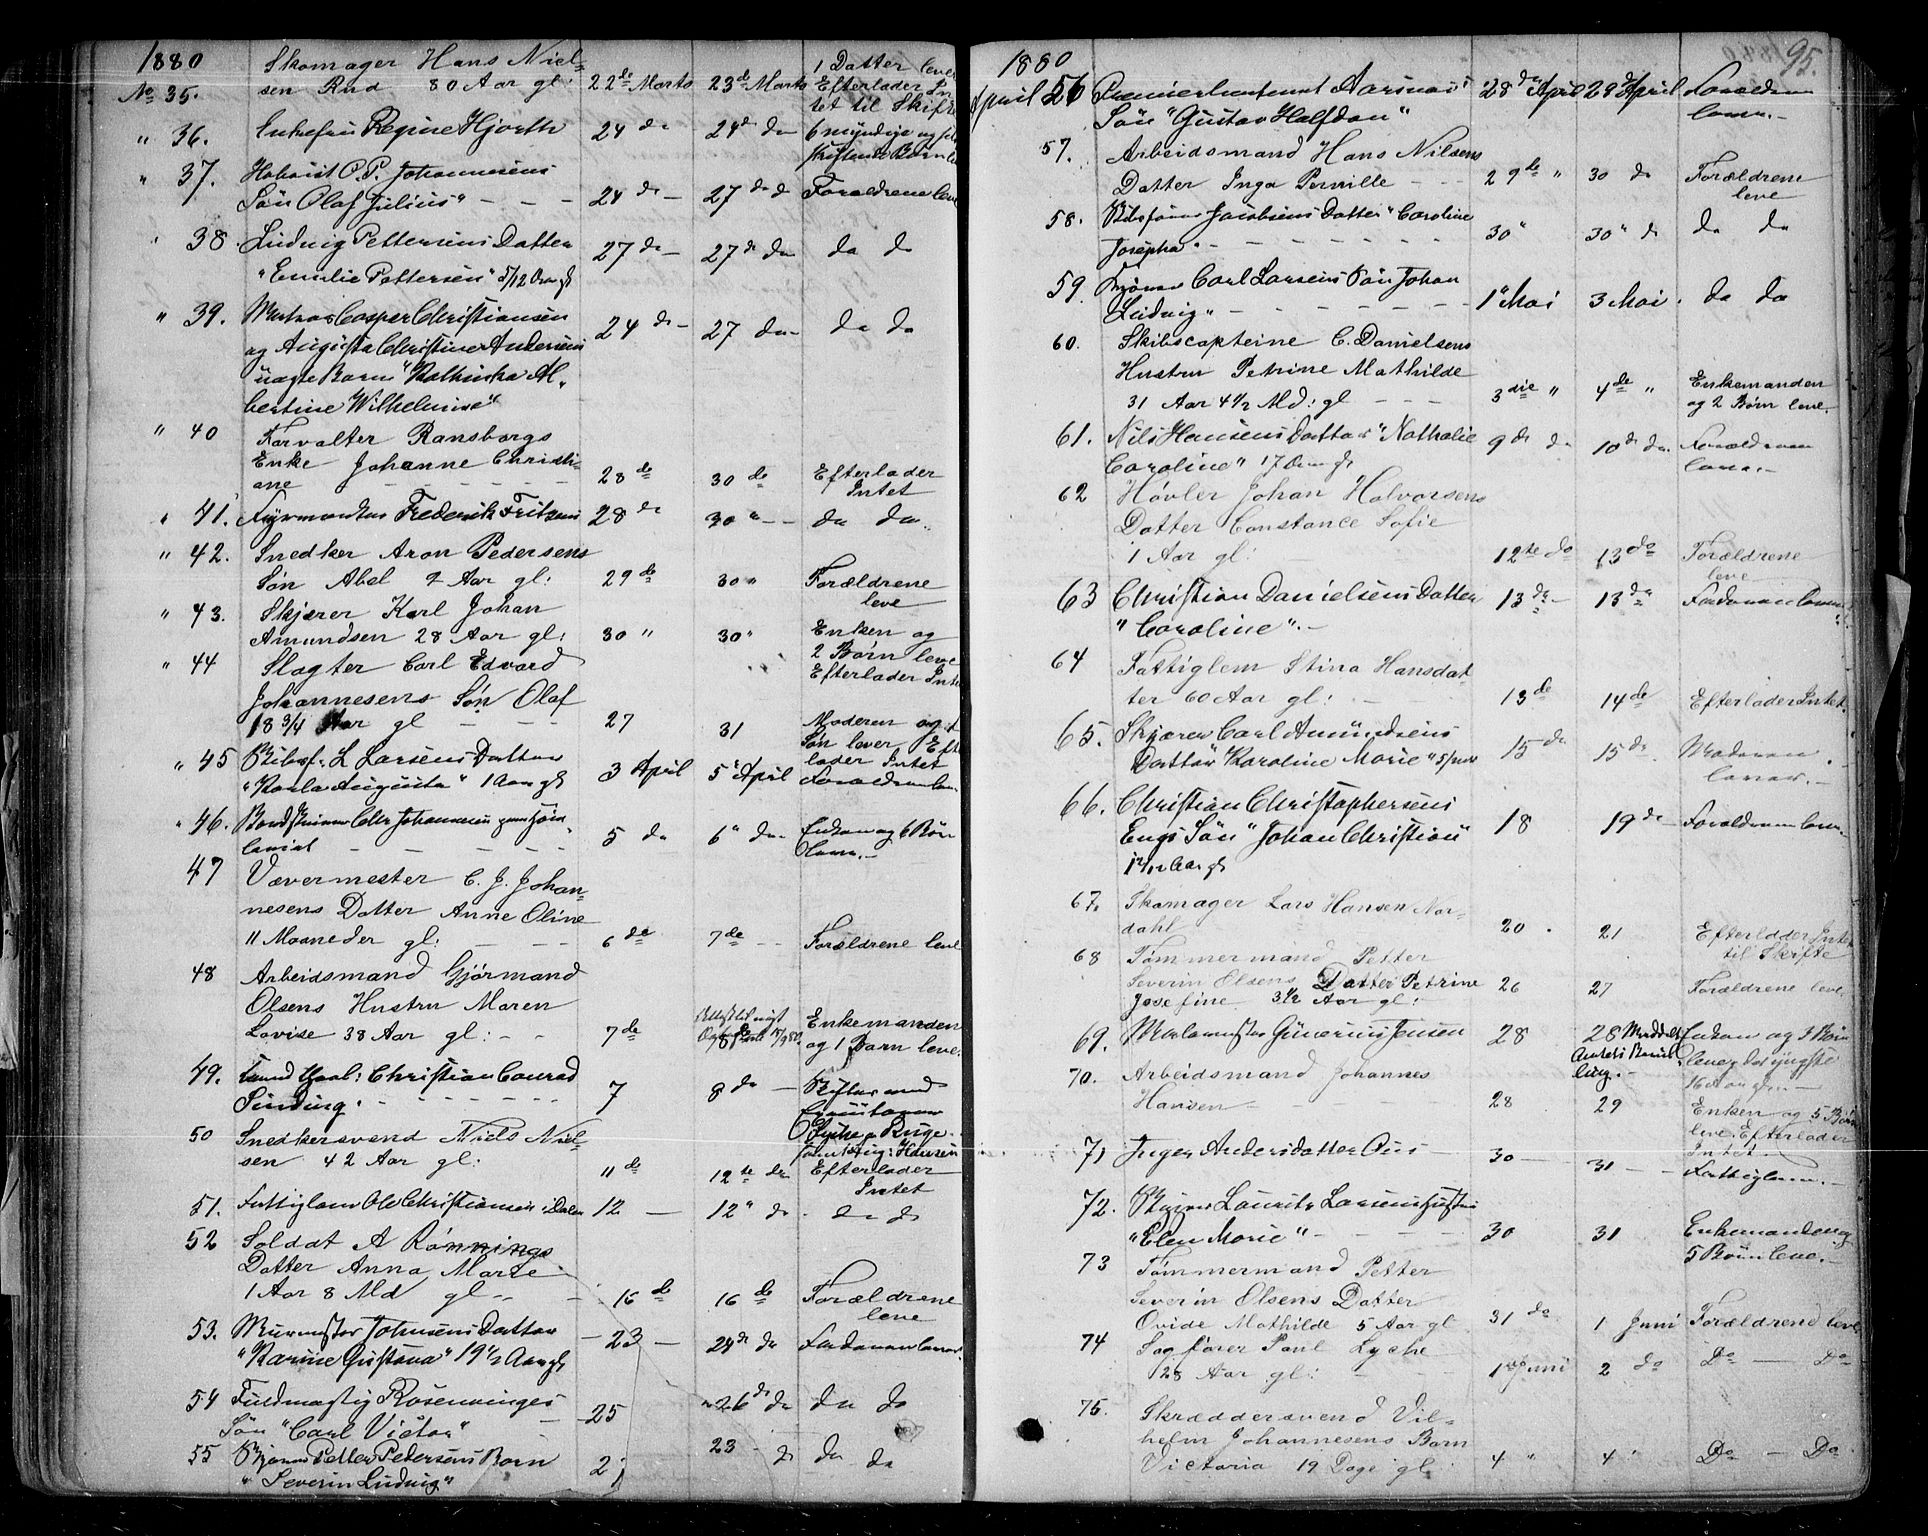 1880
Skomager Hans Niel-
1 Datter lever
No 35. sen Rud 80 Aar gl: 22de Marts 23de Marts Efterlader In
tet til Skifte
" 36. Enkefru Regine Hjorth 24 de 24de do 6 myndige og
Børn
" 37. Hoboist O. P. Johannesens
Søn Olaf Julius" - - - 24 de - 27 de do Forældrene leve
38. Ludvig Pettersens Datter 27 de - 27 de do do do
"Emilie Pettersen" 5/12 Aar gl
" 39. Matros Casper Christiansen
og Augusta Christine Andersens 24 de - 27 do - do do
uægte Barn "Mathilda Al-
bertine Wilhelmine"
" 40 Forvalter Ransborgs
Enke Johanne Christi-
ane - - - - - 28 de 30 de Efterlader
Intet
" 41. Fyrmester Frederik Fritzen 28 de 30 " - - do do
" 42. Snedker Aron Pedersens
Søn Abel 2 Aar gl: 29 de 30 " Forældrene
leve
" 43. Skjærer Karl Johan
Amundsen 28 Aar gl: 30 " 30 " Enken og
2 Børn leve
" 44 Slagter Carl Edvard Efterlader Inte
Johannesens Søn Olaf
18 3/4 Aar gl - - - 27 31 Moderen og 1
Søn lever Eft
" 45 L Larsens Datter lader Intet
"Karla Augusta" 1 Aar gl 3 April 5 April Forældrene leve
" 46. Chr Johannesen
- - - 5 do 6 " do - Enken og 6 Børn
leve. -
47 Vævermester C. J. Johan-
nesens Datter Anne Oline
11 Maaneder gl: - - - 6 de 7 de - - Forældrene leve
48 Arbeidsmand Gjørmand
Olsens Hustru Maren
Lovise 38 Aar gl: - - 7 de 8 de Enkemanden
og 1 Barn leve.
49. Christian Conrad
Sinding. - - - - - - 7 8 do - Skiftes med
50 Snedkersvend Niels Niel- Lyche & Ruge.
Aug: Hansen
sen 42 Aar gl: 11 de 12 te do Efterlader
Intet
51. Fattiglem Ole Christiansen Dalen 12 - 12 " do do do
52 Soldat A Rønnings
Datter Anna Marie
1 Aar 8 Md gl - 16 de 16 de Forældrene
leve
53. Murmester Johnsens Datter - 23 - 24 de do Faderen lever
"Karine Gustava" 19 1/2 Aar gl
54 Fuldmægtig Rosenvinges
Søn "Carl Victor" - 25 - 26 de do do do
55 Petter Petersens Barn 2 23 - do do do
"Severin Ludvig"
1880
95.
April 56 Premierlieutenant Aarsnæs's 28 de April 29 April Forældrene
Søn "Gustav Halfdan" leve. -
57. Arbeidsmand Hans Nilsens
Datter Inga Pernille - - - 29 de " 30 do Forældrene
leve
58. Skibsfører Jacobsens Datter "Caroline 30 " 30 " do do do
Josepha" - - - - - - -
59. Carl Larsens Søn Johan 1 " Mai 3 Mai. do do
Ludvig" - - - - -
60. Skibscapteine C. Danielsens
Hustru Petrine Mathilde
31 Aar 4 1/2 Md: gl - - - 3 die " 4 de " Enkemanden
og 2 Børn leve.
61. Nils Hansens Datter "Nathalie 9 de do 10 de do Forældrene
Caroline" 17 gl leve. -
62 Høvler Johan Halvorsens
Datter Constance Sofie
1 Aar gl: 12 te do 13 de Forældrene
leve
63 Christian Danielsens Datter 13 de - 13 de Forældrene leve
"Caroline". -
64 Fattiglem Stina Hansdat-
ter 60 Aar gl: - 13 de 14 de Efterlader Intet.
65. Skjærer Carl Amundsens 15 de 15 de Moderen
Datter "Karoline Marie" lever. -
66. Christian Christophersens
Engs Søn "Johan Christian" 18 19 de Forældrene leve
1 Aar gl
67. Skomager Lars Hansen Nor-
dahl 20 . 21 Efterlader Intet
til Skifte
68 Tømmermand Petter
Severin Olsens Datter Petrine
Josefine 3 1/2 Aar gl: 26 27 Forældrene leve
69. Malermester Gunerius Jensen 28 28 Enken og Børn
leve, det yngste
70. Arbeidsmand Johannes 16 Aar gl. -
Hansen - - - - - 28 29 Enken og 5 Børn
leve. Efterlader
Intet
71 Inger Andersdatter Aas - 30 - 31 - - Fattiglem. -
72. Lauritz Larsens Hustru
"Elen Marie" - - - - 30 31 Enkemanden og
5 Børn leve. -
73 Tømmermand Petter
Severin Olsens Datter
Ovide Mathilde 5 Aar gl 31 de 1 Juni Forældrene leve
74 Sagfører Paul Lyche
28 Aar gl: - - 1 Juni 2 do Do - Do
75. Skræddersvend Vil-
helm Johannesens Barn
Victoria 19 Dage gl 4 " 4 " Do - Do